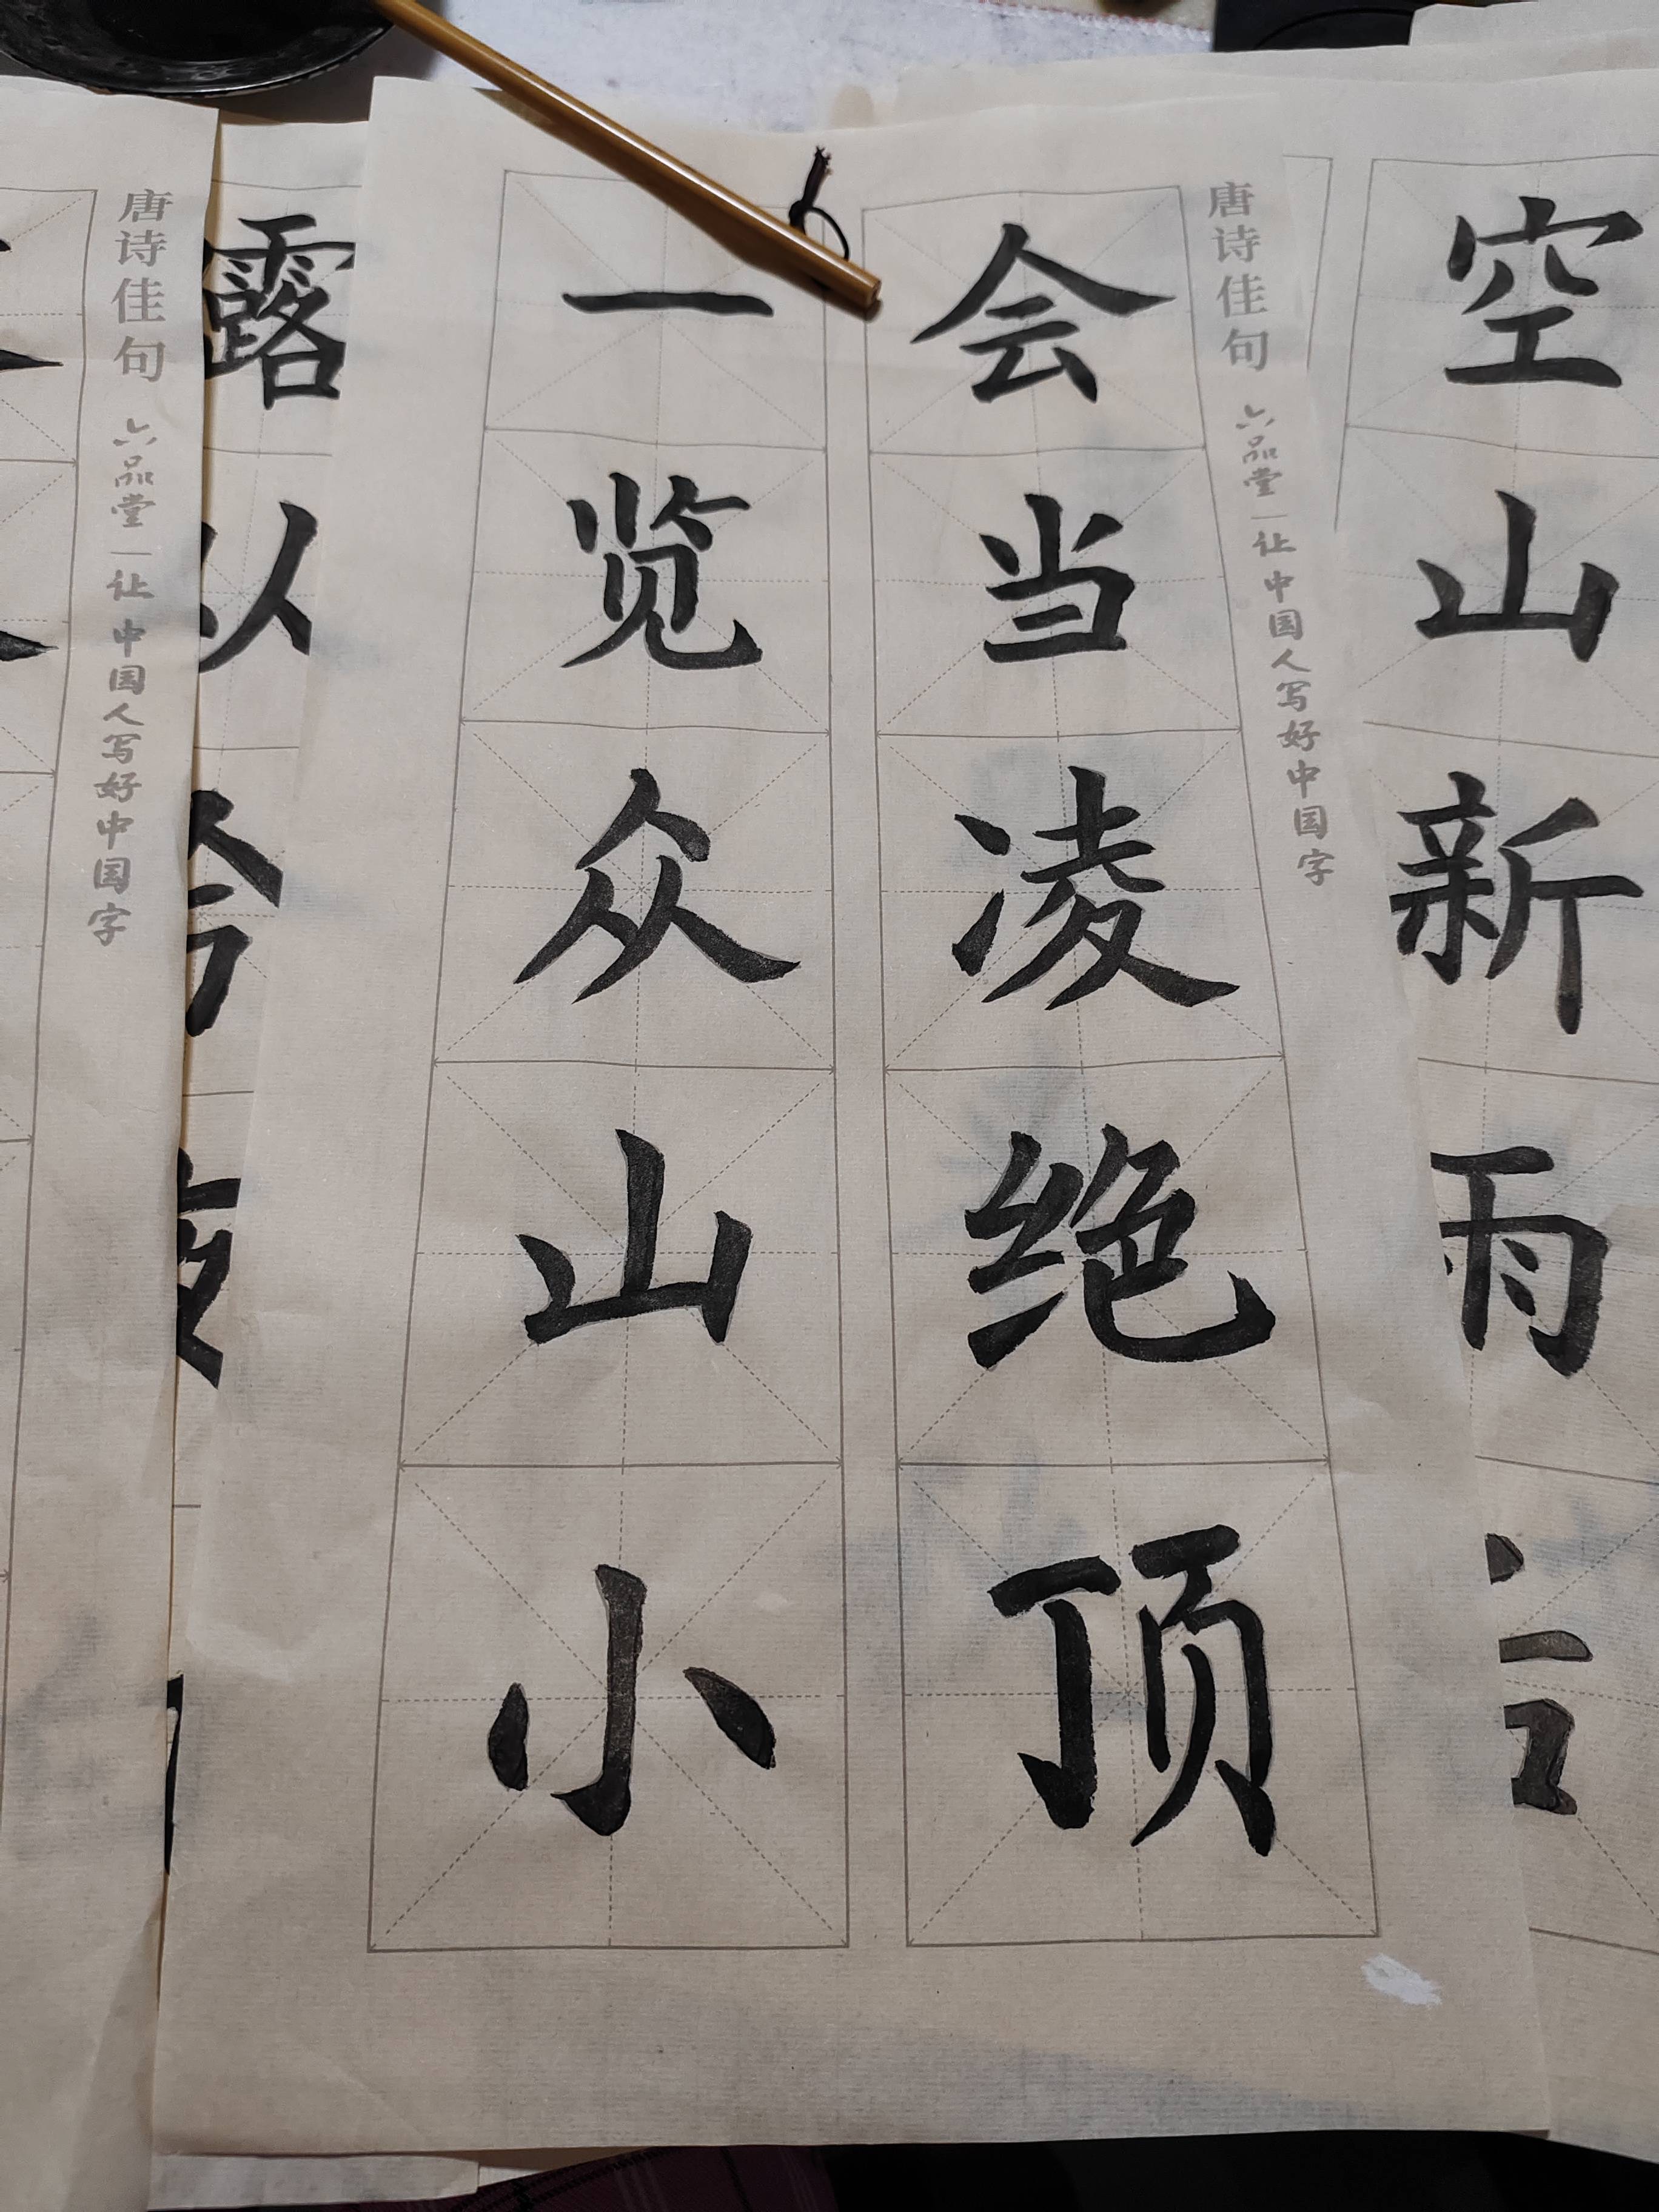 空山新雨
唐诗佳句 六品堂|让中国人写好中国字
会当凌绝顶
一览众山小
露从今夜
唐诗佳句 六品堂|让中国人写好中国字